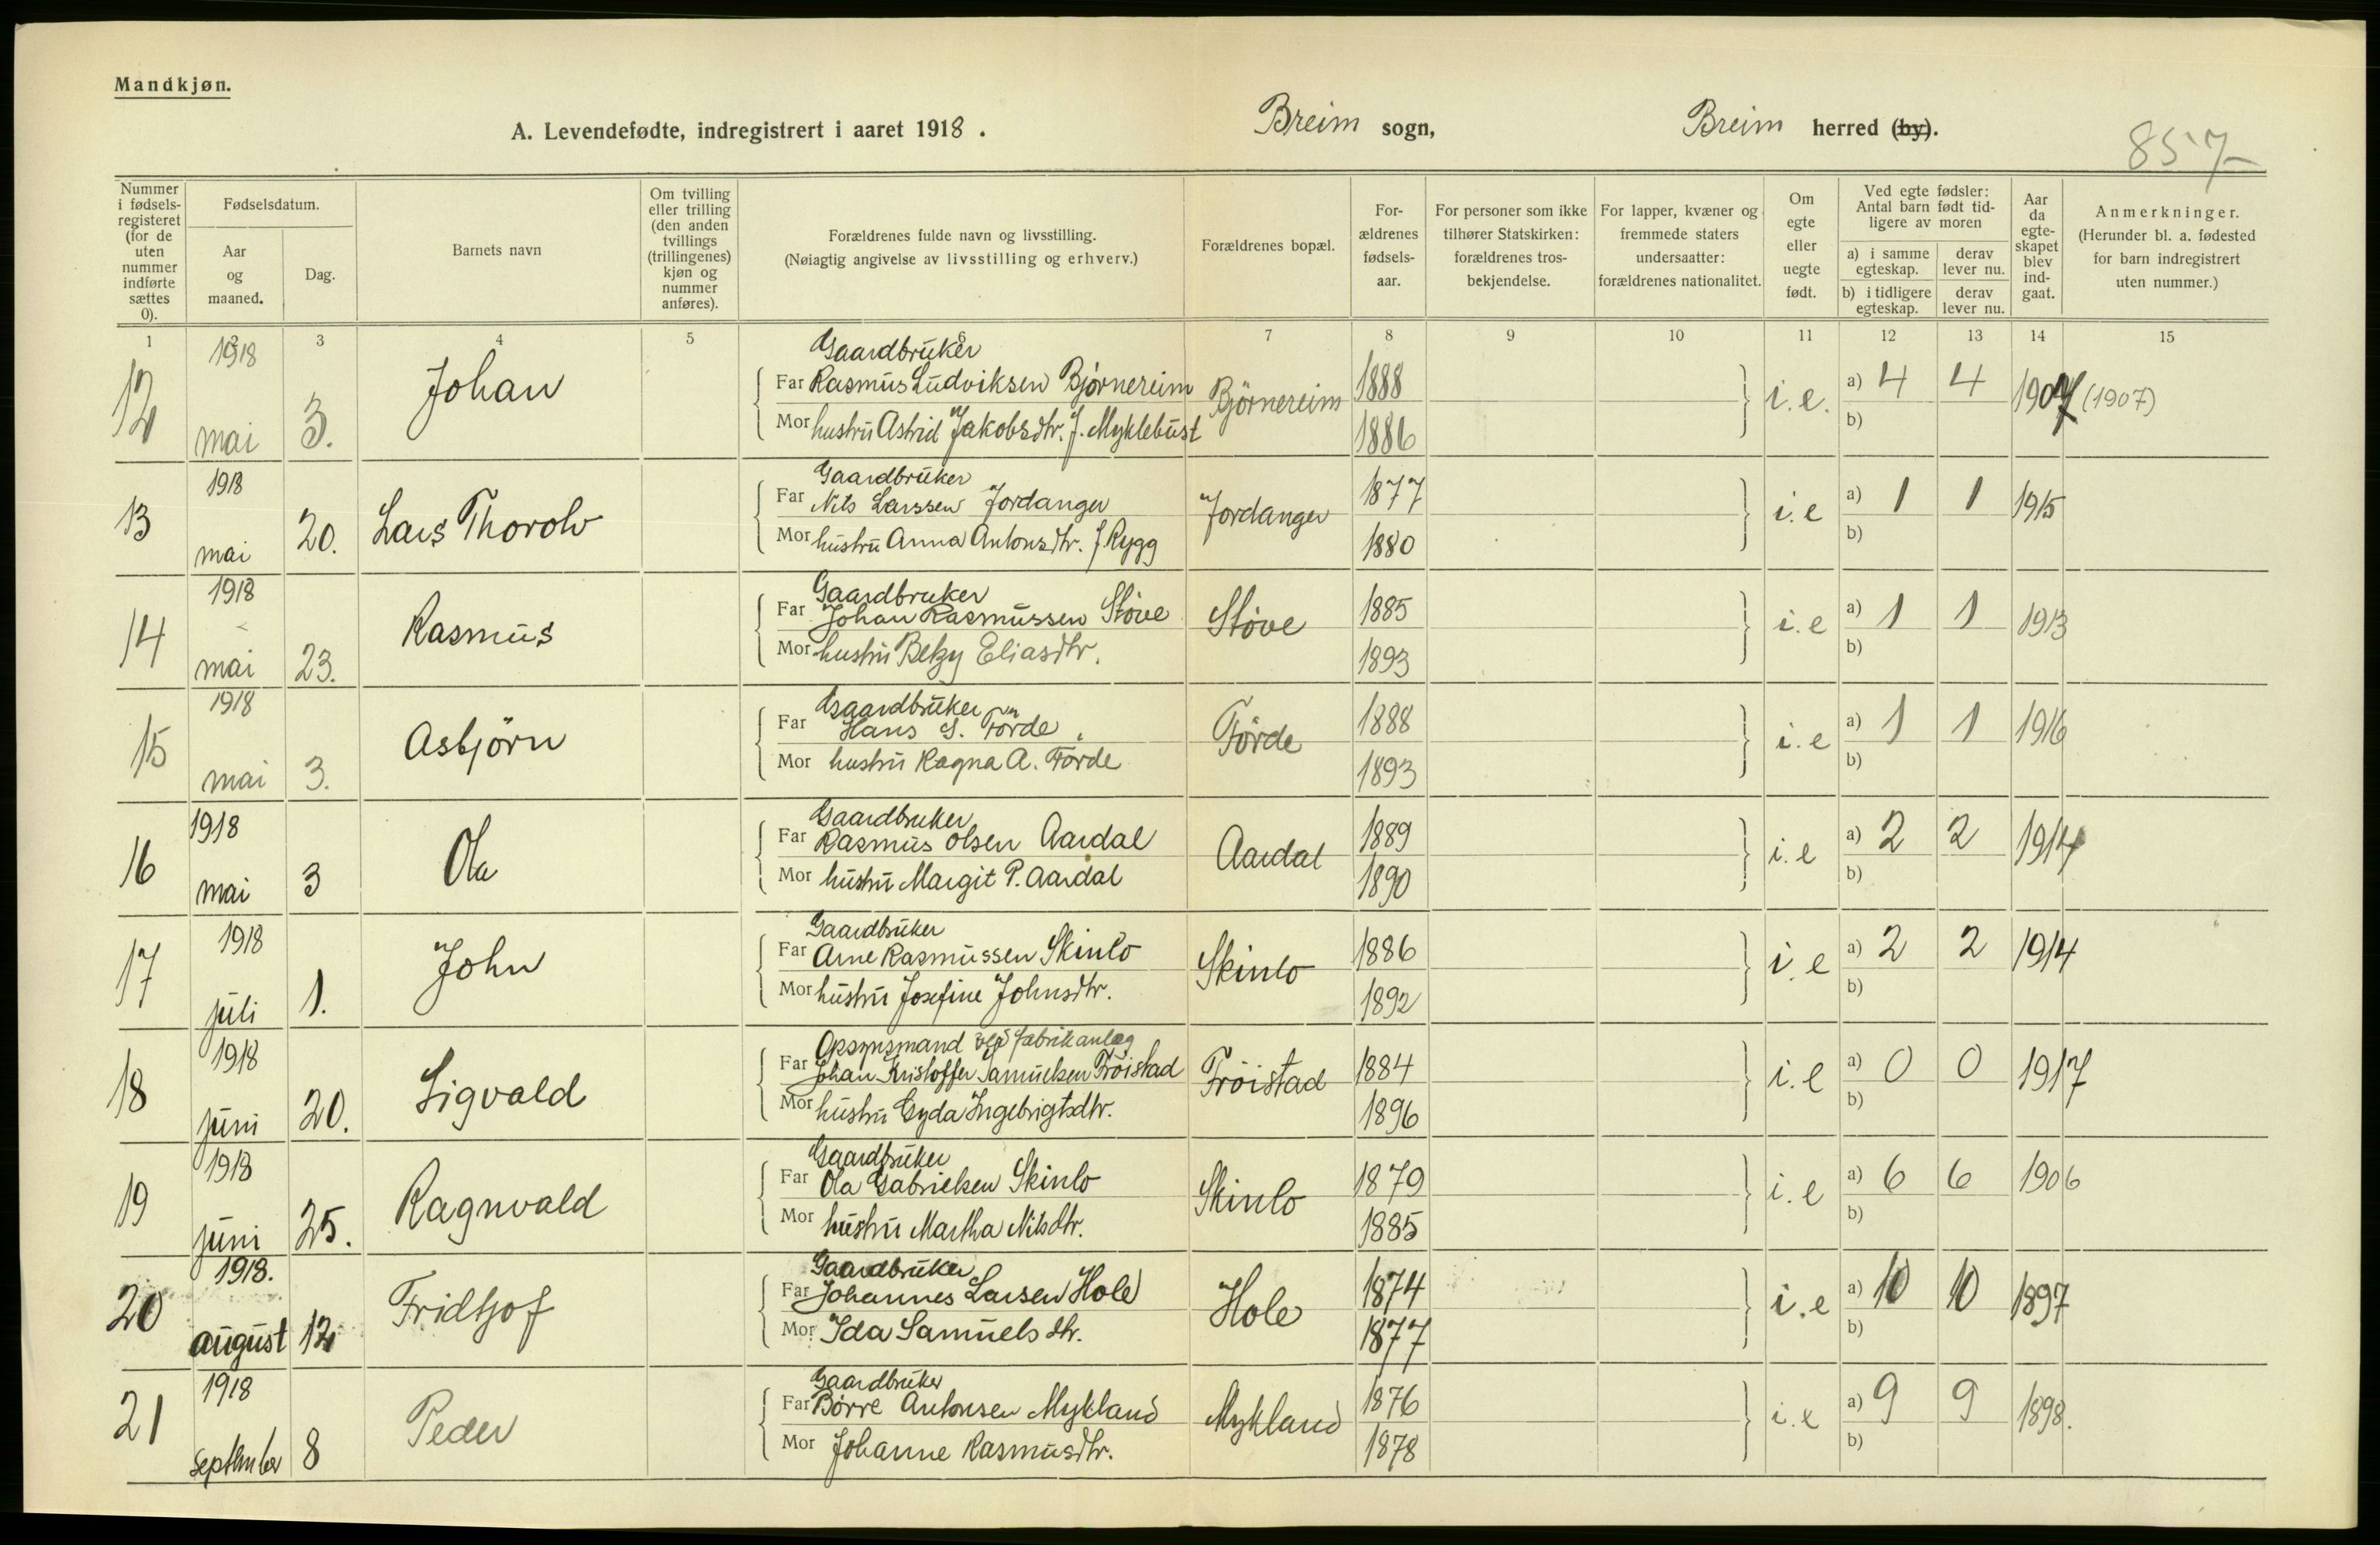 Mandkjøn.
A. Levendefødte, indregistrert i aaret 1918. Breim sogn, Breim herred (by).
857
Nummer i fødselsregisteret (for de uten nummer indførte sættes 0).
Fødselsdatum.
Aar og maaned.
Dag.
Barnets navn
Om tvilling eller trilling (den anden tvillings (trillingenes) kjøn og nummer anføres).
Forældrenes fulde navn og livsstilling.
(Nøiagtig angivelse av livsstilling og erhverv.)
Forældrenes bopæl.
Forældrenes fødselsaar.
For personer som ikke tilhører Statskirken: forældrenes trosbekjendelse.
For lapper, kvæner og fremmede staters undersaatter: forældrenes nationalitet.
Om egte eller uegte født.
Ved egte fødsler: Antal barn født tidligere av moren
a) i samme egteskap. derav lever nu.
b) i tidligere egteskap. derav lever nu.
Aar da egteskapet blev indgaat.
Anmerkninger.
(Herunder bl. a. fødested for barn indregistrert uten nummer.)
1 2 3 4 5 6 7 8 9 10 11 12 13 14 15
1918 Gaardbruker
12 mai 3. Johan Far Rasmus Ludviksen Bjørnereim Bjørnereim 1888 i.e. a) 4 4 1907 (1907)
Mor hustru Astrid Jakobsdtr. f. Myklebust 1886 b)
1918 Gaardbruker
13 mai 20. Lars Thorolv Far Nils Larssen Jordanger Jordanger 1877 i.e a) 1 1 1915
Mor hustru Anna Antonsdtr. f. Rygg 1880 b)
1918 Gaardbruker
14 mai 23. Rasmus Far Johan Rasmussen Støve Støve 1885 i.e a) 1 1 1913
Mor hustru Betzy Eliasdtr. 1893 b)
1918 Gaardbruker
15 mai 3. Asbjörn Far Hans S. Førde Førde 1888 i.e a) 1 1 1916
Mor hustru Ragna A. Førde 1893 b)
1918 Gaardbruker
16 mai 3 Ola Far Rasmus Olsen Aardal Aardal 1889 i.e a) 2 2 1914
Mor hustru Margit P. Aardal 1890 b)
1918 Gaardbruker
17 juli 1. John Far Arne Rasmussen Skinlo Skinlo 1886 i.e a) 2 2 1914
Mor hustru Josefine Johnsdtr. 1892 b)
1918 Opsynsmand ved fabrikanlæg
18 juni 20. Sigvald Far Johan Kristoffer Samuelsen Trøistad Trøistad 1884 i.e a) 0 0 1917
Mor hustru Eyda Ingebrigtsdtr. 1896 b)
1918 Gaardbruker
19 juni 25. Ragnvald Far Ola Gabrielsen Skinlo Skinlo 1879 i.e a) 6 6 1906
Mor hustru Martha Nilsdtr. 1885 b)
1918. Gaardbruker
20 august 12 Fridtjof Far Johannes Larsen Hole Hole 1874 i.e a) 10 10 1897
Mor Ida Samuelsdtr. 1877 b)
1918 Gaardbruker
21 september 8 Peder Far Børre Antonsen Mykland Mykland 1876 i.e a) 9 9 1898.
Mor Johanne Rasmusdtr. 1878 b)